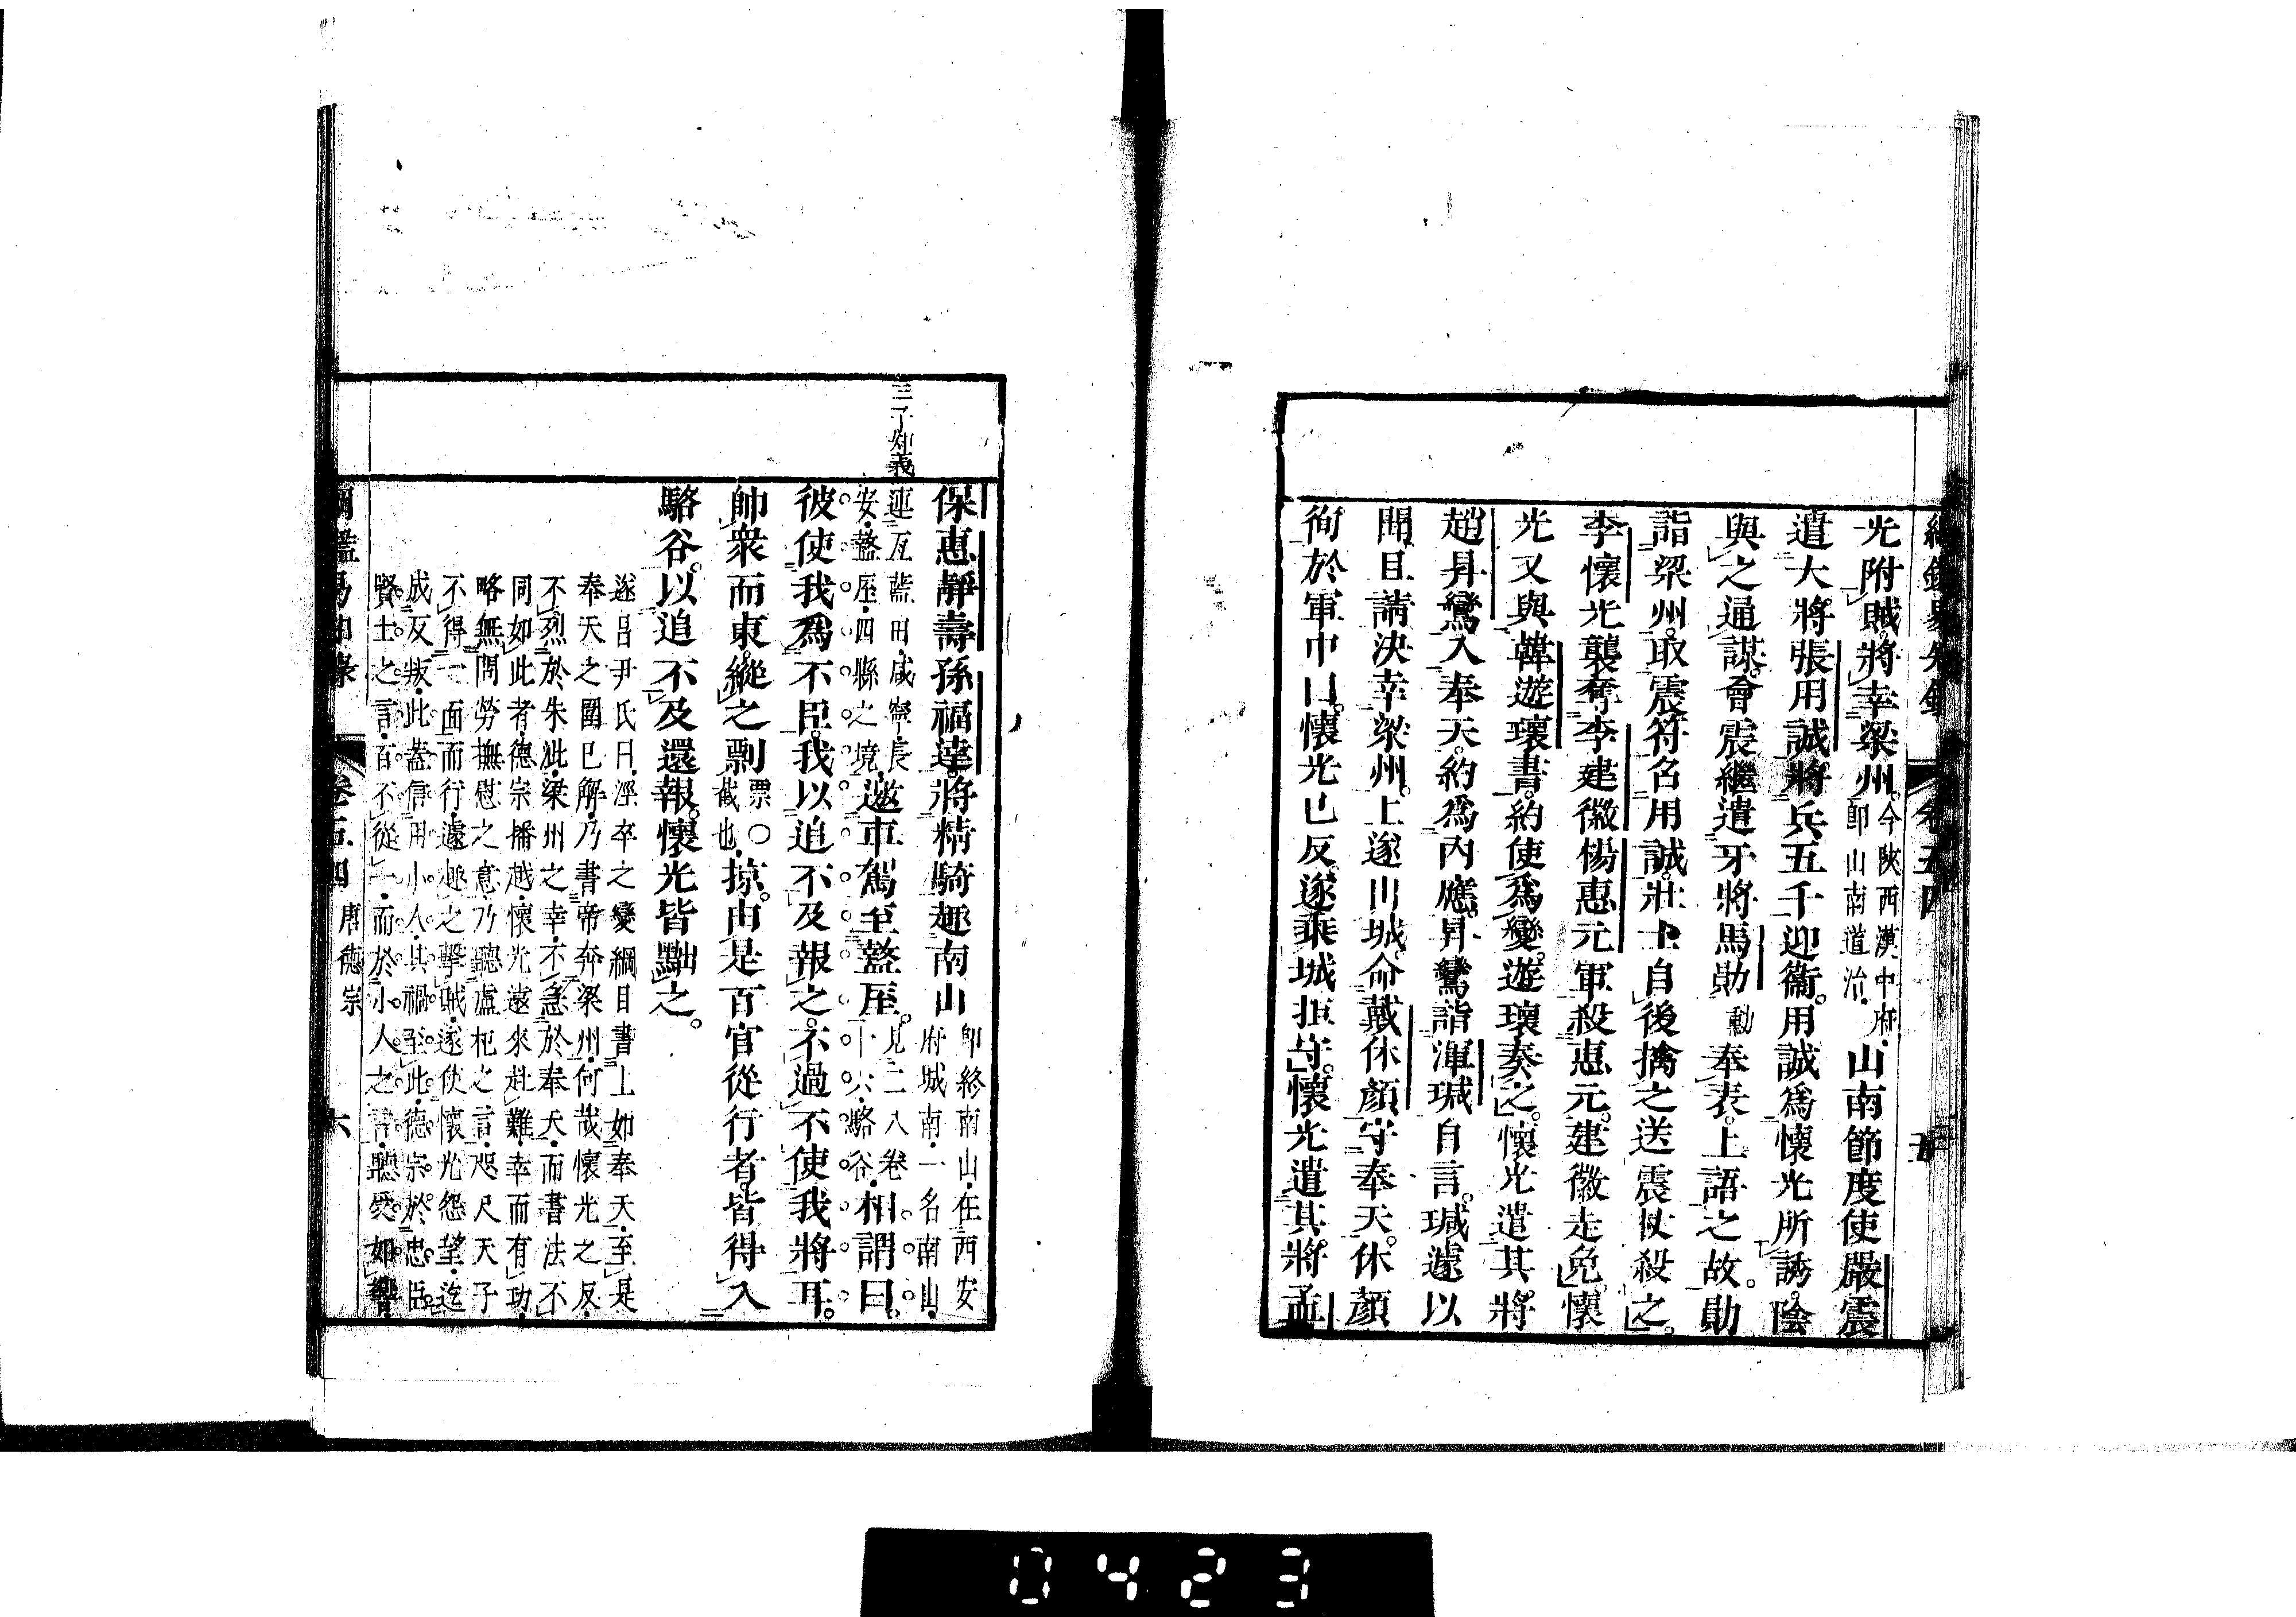 綱鑑易知錄 卷五四 五
光附賊。將幸梁州。今陝西漢中府。即山南道治。山南節度使嚴震
遣大將張用誠將兵五千迎衞。用誠爲懷光所誘。陰
與之通謀。會震繼遣牙將馬勛勳奉表。上語之故。勛
詣梁州。取震符召用誠。壯士自後擒之。送震杖殺之。
李懷光襲奪李建徽楊惠元軍。殺惠元。建徽走免。懷
光又與韓遊瓌書。約使爲變。遊瓌奏之。懷光遣其將
趙昇鸞入奉天。約爲內應。昇鸞詣渾瑊自言。瑊遽以
聞。且請決幸梁州。上遂出城。命戴休顏守奉天。休顏
徇於軍中曰。懷光已反。遂乘城拒守。懷光遣其將孟
三子知義
保惠靜壽孫福達。將精騎趣南山即終南山。在西安府城南。一名南山。
連亙藍田。咸寧。長安。盩厔。四縣之境。邀車駕至盩厔。見二八卷十六。駱谷。相謂曰。
彼使我爲不臣。我以追不及報之。不過不使我將耳。
帥衆而東。縱之剽票〇截也。掠。由是百官從行者。皆得入
駱谷。以追不及還報。懷光皆黜之。
遂昌尹氏曰。涇卒之變。綱目書上如奉天。至是
奉天之圍已解。乃書帝奔梁州。何哉。懷光之反。
不烈於朱泚。梁州之幸。不急於奉天。而書法不
同如此者。德宗播越。懷光遠來赴難。幸而有功。
略無問勞撫慰之意。乃聽盧杞之言。咫尺天子
不得一面而行。遽趣之擊賊。遂使懷光怨望。迄
成反叛。此蓋信用小人。其禍至此。德宗於忠臣
賢士之言。百不從一。而於小人之言。聽受如響。
綱鑑易知錄 卷五四 唐德宗 六
0423